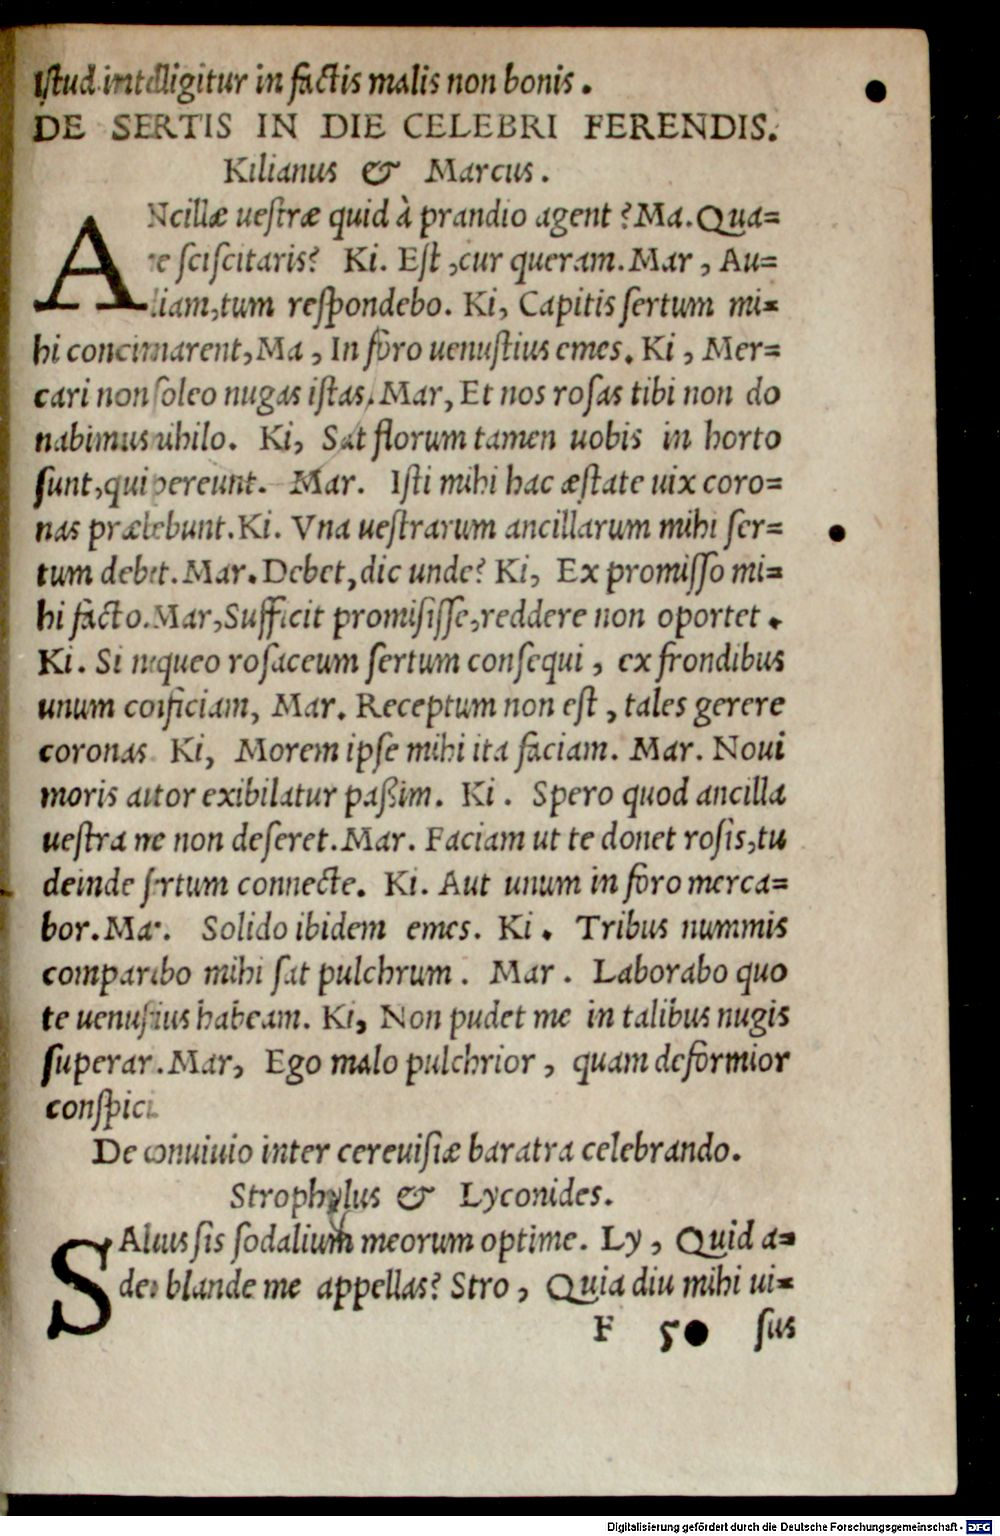 Iſtud intelligitur in factis malis non bonis.
DE SERTIS IN DIE CELEBRI FERENDIS.
Kilianus & Marcus.
ANcillæ ueſtræ quid à prandio agent? Ma. Qua=
re ſciſcitaris? Ki. Eſt, cur queram. Mar, Au=
diam, tum reſpondebo. Ki, Capitis ſertum mi=
hi concinnarent, Ma, In foro uenuſtius emes. Ki, Mer=
cari non ſoleo nugas iſtas. Mar, Et nos roſas tibi non do
nabimus nihilo. Ki, Sat florum tamen uobis in horto
ſunt, qui pereunt. Mar. Iſti mihi hac æſtate uix coro=
nas præbebunt. Ki. Vna ueſtrarum ancillarum mihi ſer=
tum debet. Mar. Debet, dic unde? Ki, Ex promiſſo mi=
hi facto. Mar, Sufficit promiſiſſe, reddere non oportet.
Ki. Si nequeo roſaceum ſertum conſequi, ex frondibus
unum conficiam, Mar. Receptum non eſt, tales gerere
coronas Ki, Morem ipſe mihi ita faciam. Mar. Noui
moris autor exibilatur paßim. Ki. Spero quod ancilla
ueſtra me non deſeret. Mar. Faciam ut te donet roſis, tu
deinde ſertum connecte. Ki. Aut unum in foro merca=
bor. Mar. Solido ibidem emes. Ki. Tribus nummis
comparabo mihi ſat pulchrum. Mar. Laborabo quo
te uenuſtius habeam. Ki, Non pudet me in talibus nugis
ſuperar. Mar, Ego malo pulchrior, quam deformior
conſpici.
De conuiuio inter cereuiſiæ baratra celebrando.
Strophylus & Lyconides.
SAluus ſis ſodalium meorum optime. Ly, Quid a=
deo blande me appellas? Stro, Quia diu mihi ui=
F 5 ſus
Digitalisierung gefördert durch die Deutsche Forschungsgemeinschaft - DFG